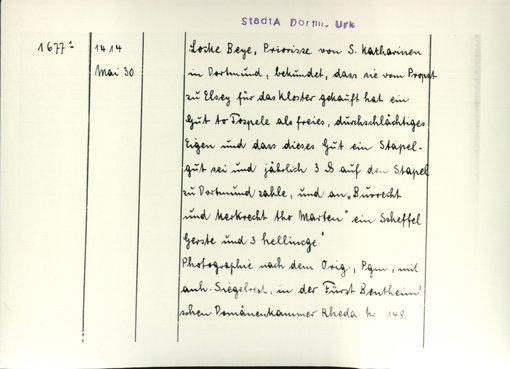 StadtA Dortm. Urk
1677a 1414 Locke Beye, Priorisse von S. Katharinen
Mai 30 in Dortmund, bekundet, dass sie vom Propst
zu Elsey für das Kloster gekauft hat ein
Gut to Dospele als freies, durchschlächtiges
Eigen und dass dieses Gut ein Stapel-
gut sei und jährlich 3 ₰ auf den Stapel
zu Dortmund zahle, und an „Burrecht
und Merkrecht tho Marten" ein Scheffel
Gerste und 3 hellincge."
Photographie nach dem Orig., Pgm., mit
anh. Siegelrest, in der Fürst Bentheim'
schen Domänenkammer Rheda Nr 148